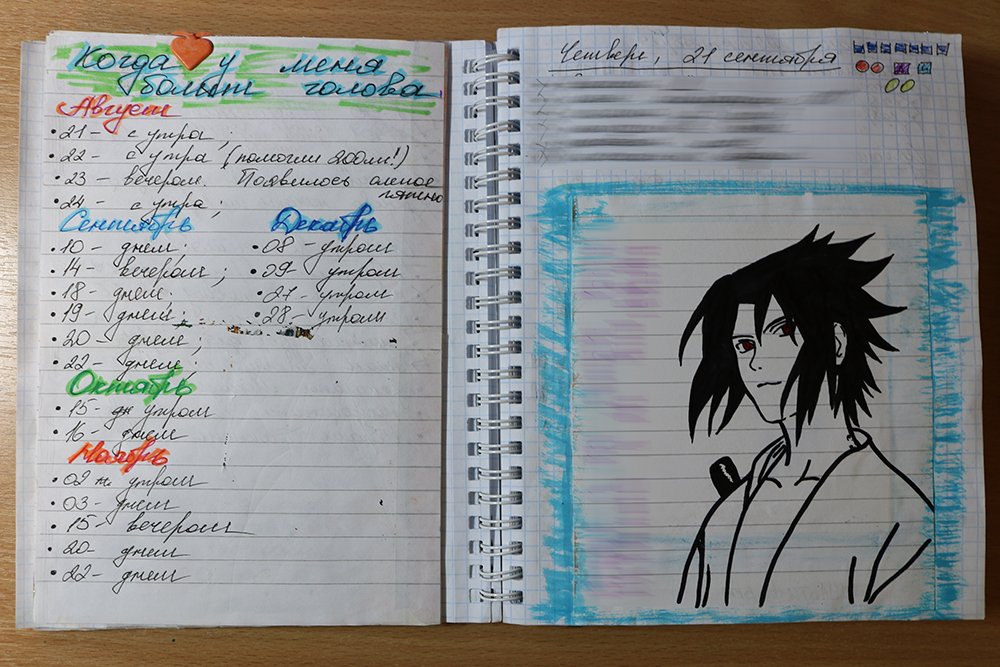 Когда у меня
болит голова.
Август
• 21 - с утра;
• 22 - с утра (помогли 200мл!)
• 23 - вечером. Появилось слепое
пятно
• 24 - с утра;
Сентябрь
• 10 - днем;
• 14 - вечером;
• 18 - днем;
• 19 - днем;
• 20 - днем;
• 22 - днем
Октябрь
• 15 - дн утром
• 16 - днем
Ноябрь
• 02 - утром
• 03 - днем
• 15 - вечером
• 20 - днем
• 22 - днем
Декабрь
• 08 - утром
• 09 - утром
• 27 - утром
• 28 - утром
Четверг, 21 сентября